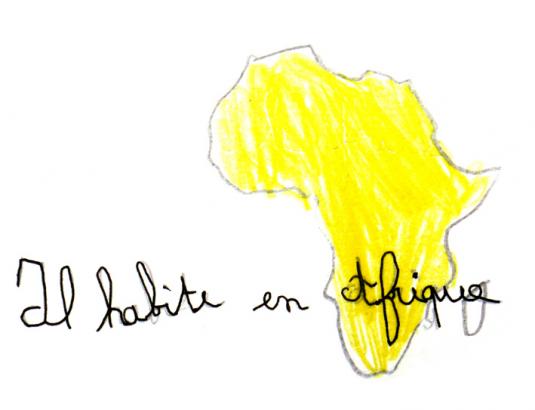 Il habite en Afrique